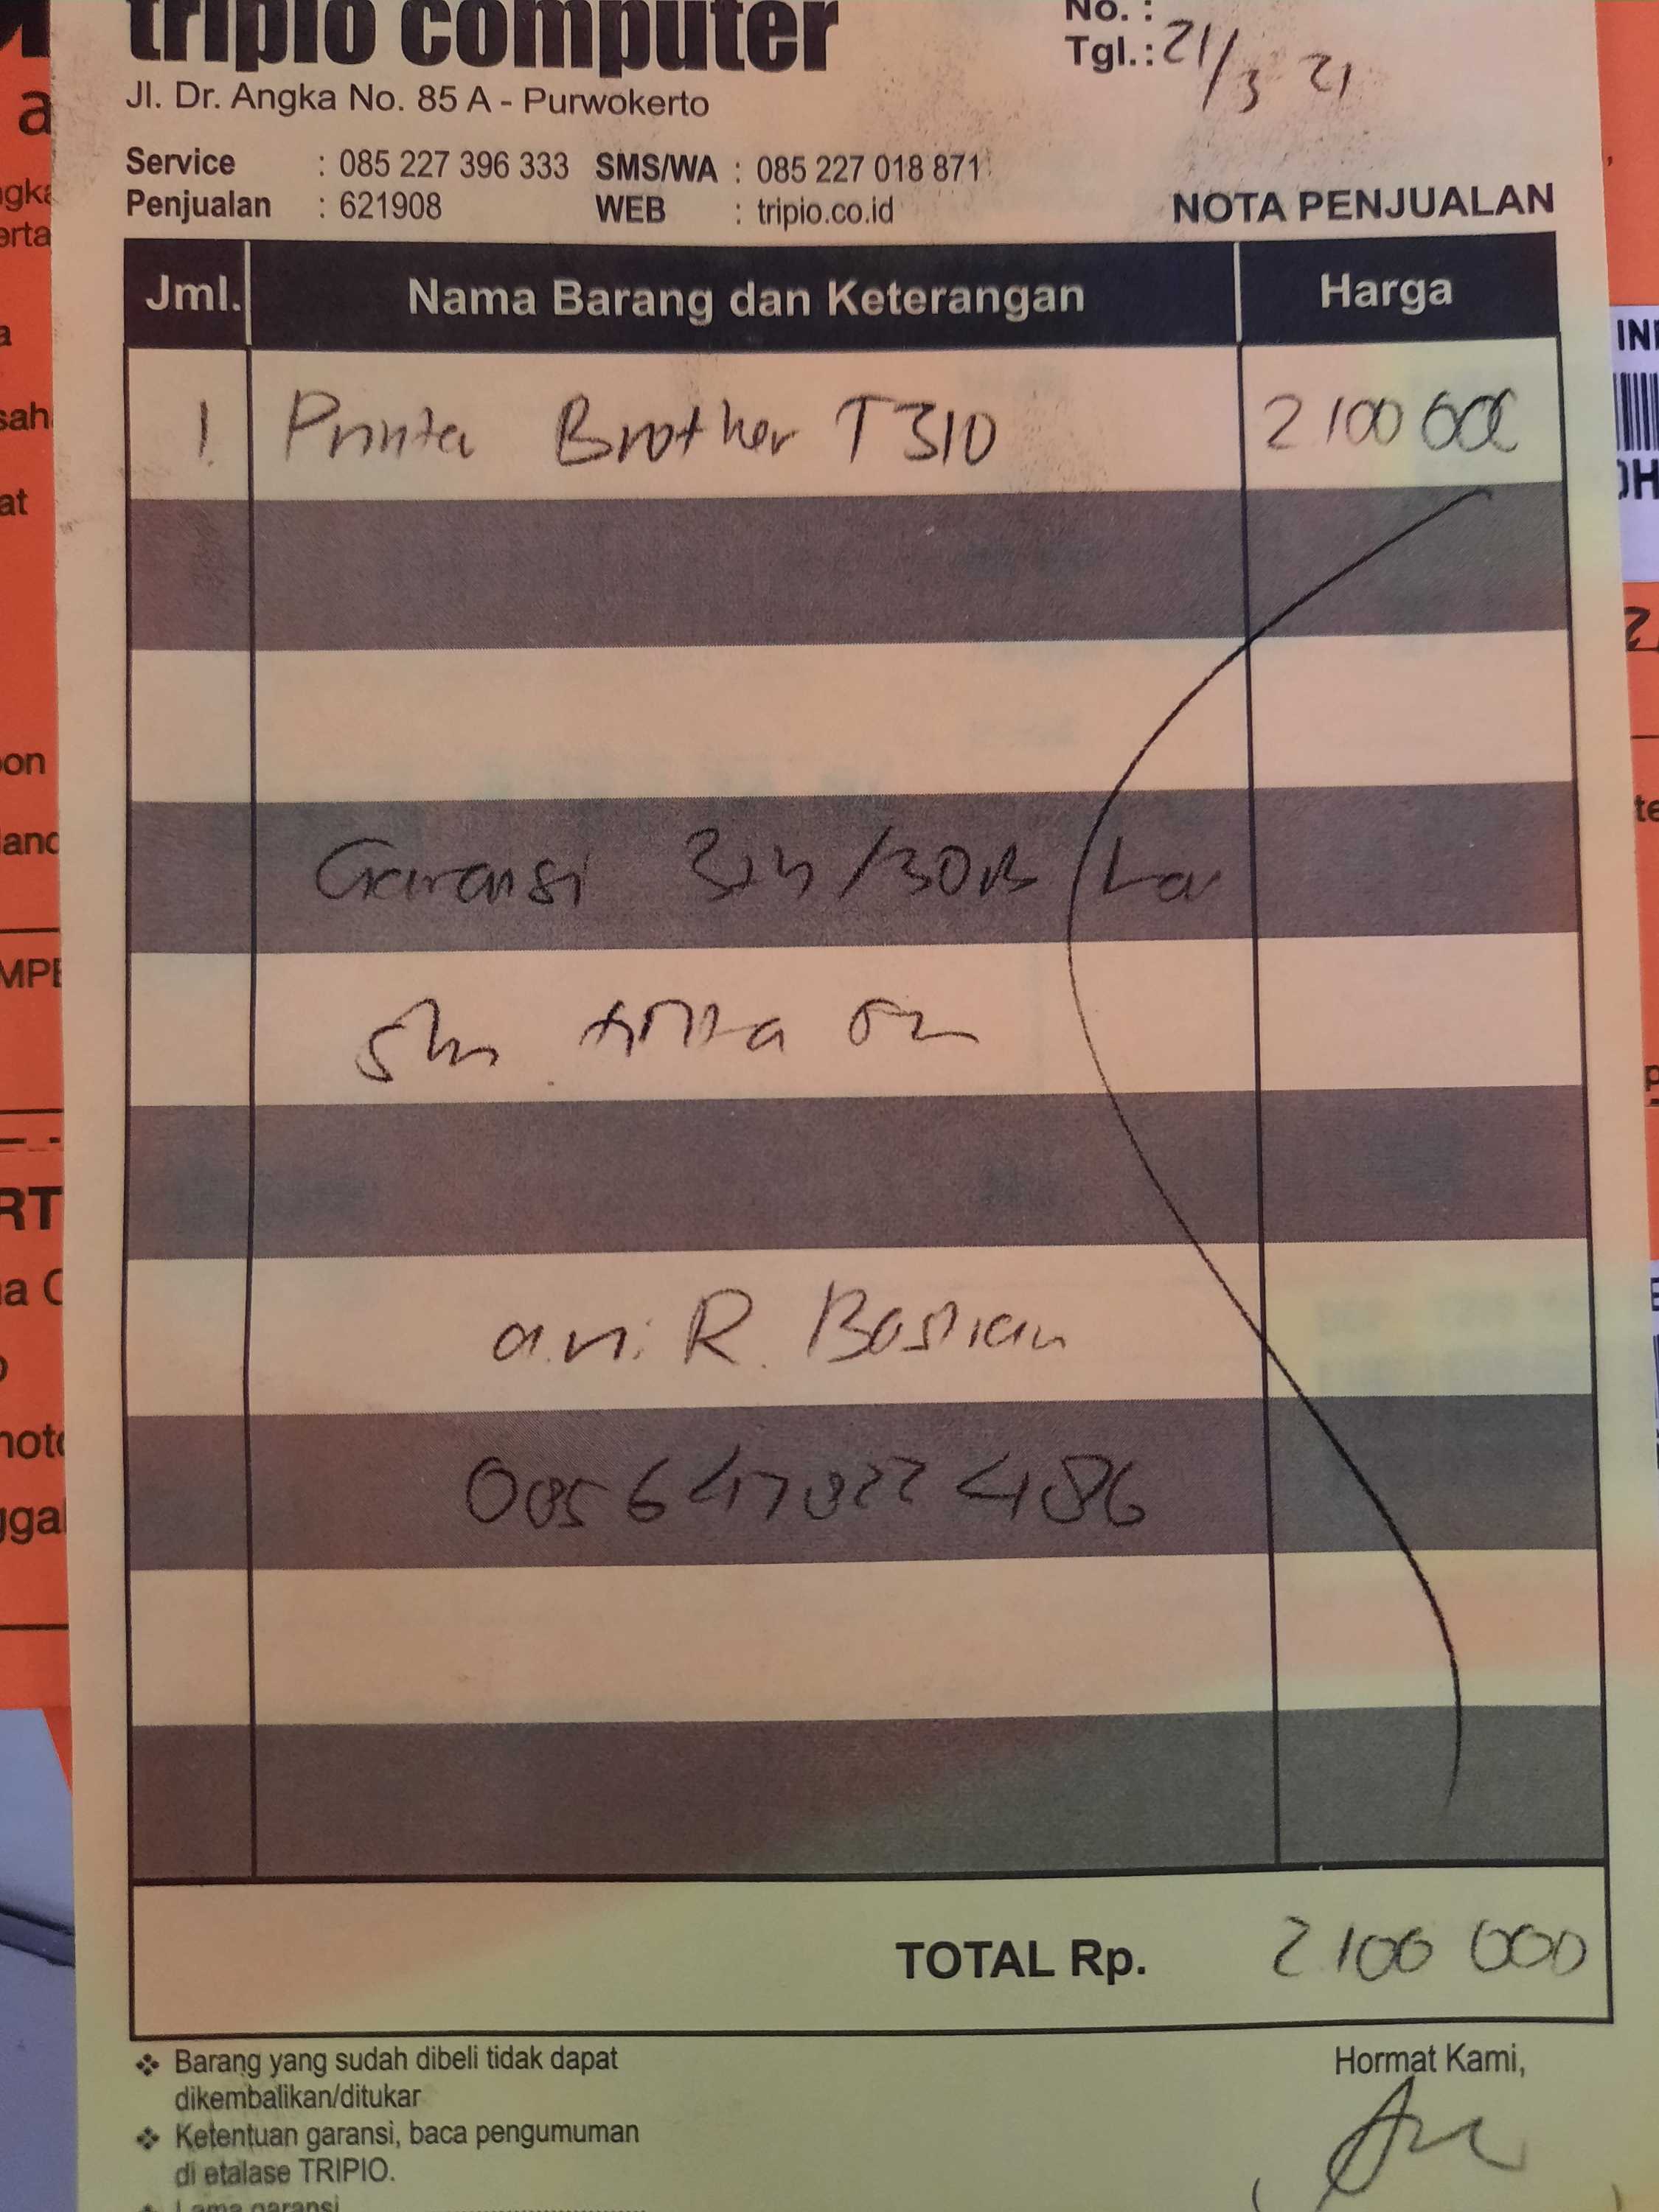 tripio computer
No. :
Tgl.: 21/3 21
Jl. Dr. Angka No. 85 A - Purwokerto
Service : 085 227 396 333 SMS/WA : 085 227 018 871
Penjualan : 621908 WEB : tripio.co.id
NOTA PENJUALAN
Jml. Nama Barang dan Keterangan Harga
1 Printer Brother T310 2 100 000
Garansi 3th/30rb
a.n. R. Bastian
085647822486
TOTAL Rp. 2 100 000
Barang yang sudah dibeli tidak dapat
dikembalikan/ditukar
Hormat Kami,
Ketentuan garansi, baca pengumuman
di etalase TRIPIO.
Lama garansi